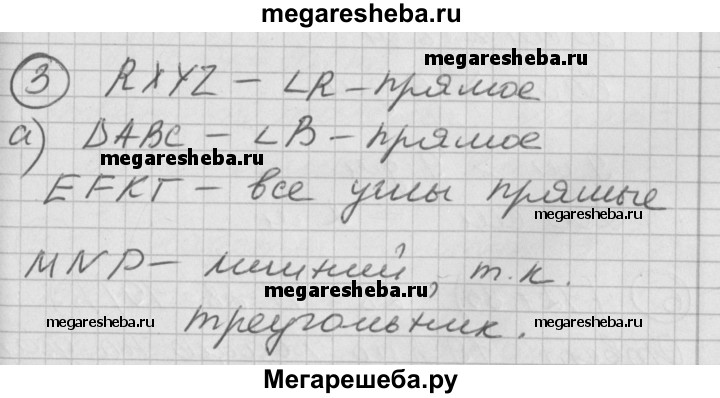 megaresheba.ru
megaresheba.ru
3 RXYZ – ∠R – прямое
а) DABC – ∠B – прямое
megaresheba.ru
EFKT – все углы прямые
megaresheba.ru
MNP – лишний, т.к.
megaresheba.ru
megaresheba.ru megaresheba.ru
треугольник.
Мегарешеба.ру